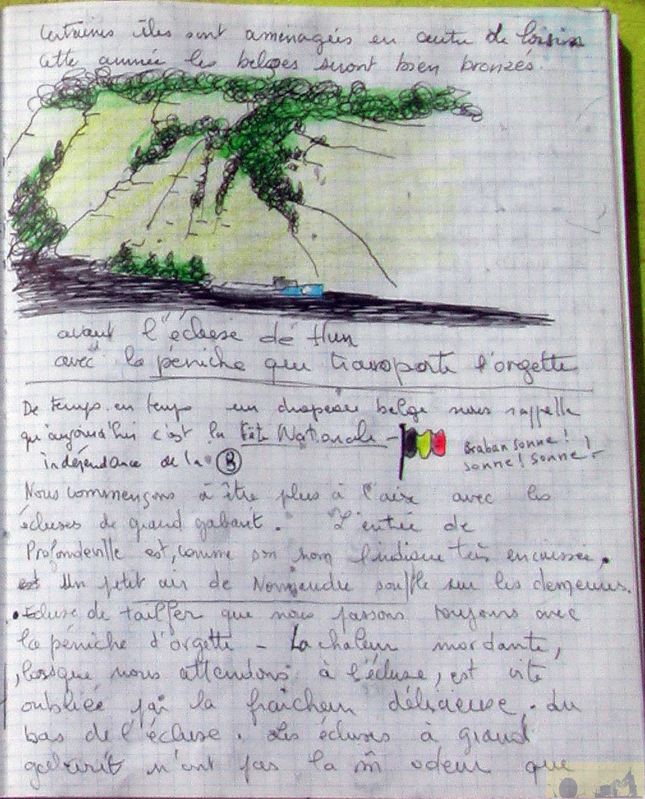 certaines îles sont aménagées en centre de loisirs
Cette année les belges seront bien bronzés.
avant l'écluse de Hun
avec la péniche qui transporte l'orgette
De temps en temps un drapeau belge nous rappelle
qu'aujourd'hui c'est la Fête Nationale -
Brabansonne !
sonne ! sonne !
indépendance de la B
Nous commençons à être plus à l'aise avec les
écluses de grand gabarit. L'entrée de
Profondeville est, comme son nom l'indique très encaissée.
Un petit air de Normandie souffle sur les demeures.
• Ecluse de tailfer que nous passons toujours avec
la péniche d'orgette - La chaleur mordante,
lorsque nous attendons à l'écluse, est vite
oubliée par la fraîcheur délicieuse du
bas de l'écluse. Les écluses à grand
gabarit n'ont pas la m̂ odeur que